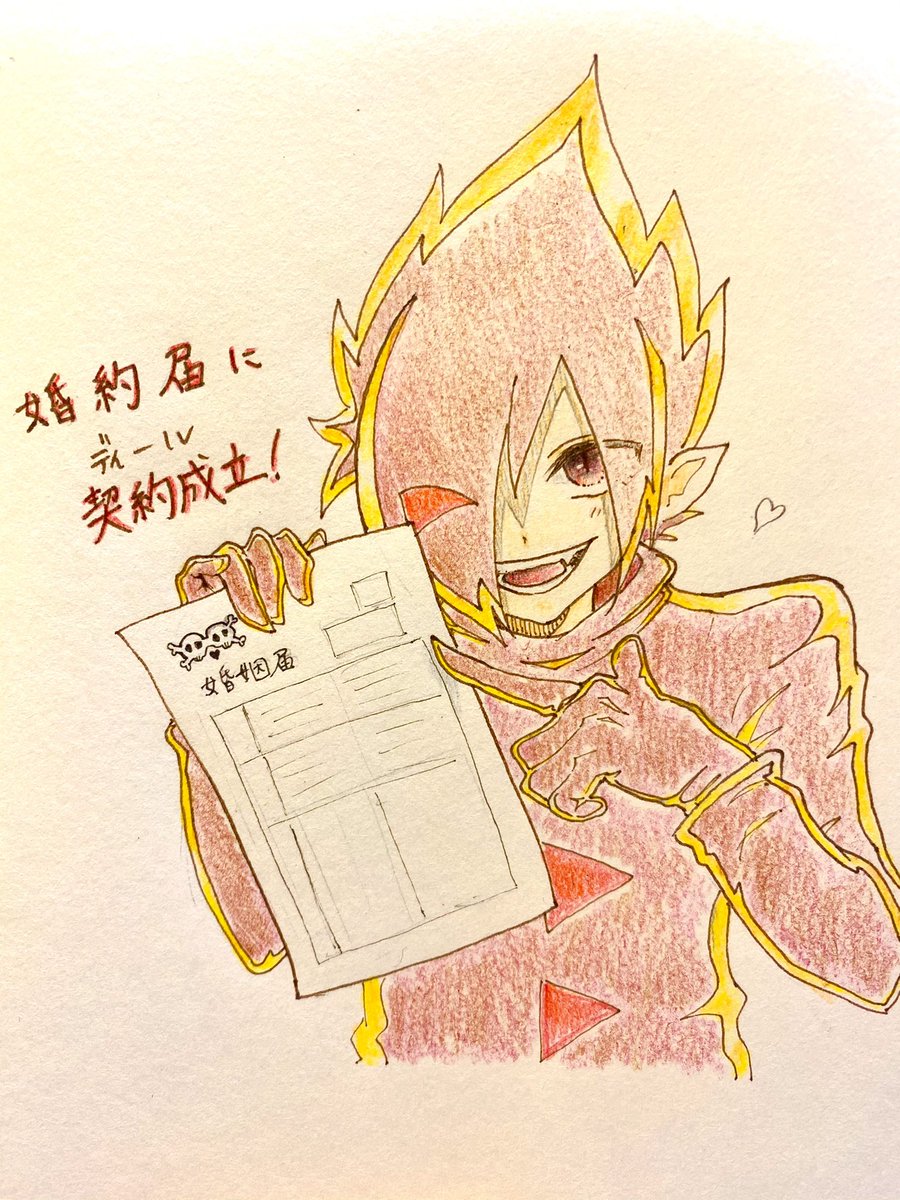 婚約届に
ディール
契約成立!
婚姻届